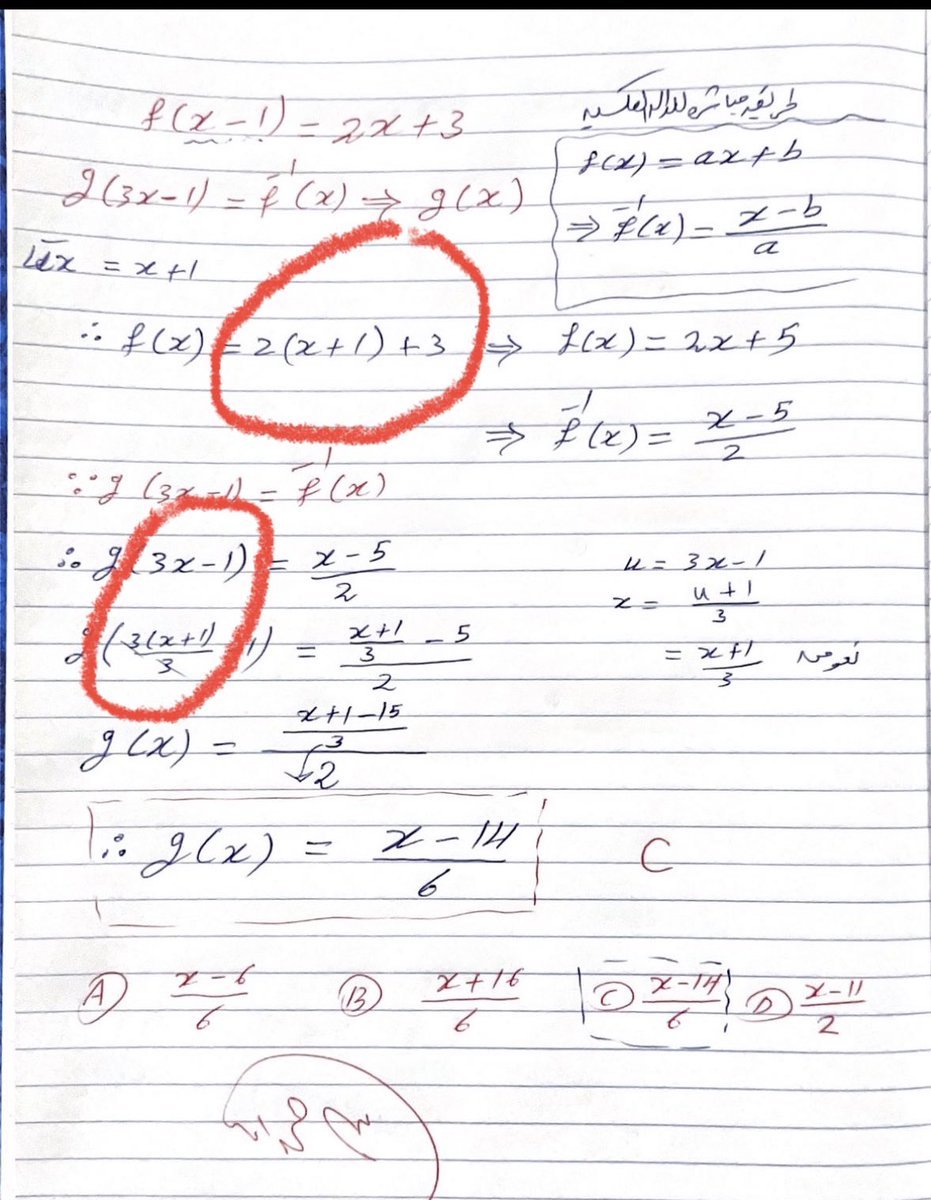 f(x-1) = 2x+3
طريقه مباشره للداله العكسيه
f(x) = ax+b
⇒ f⁻¹(x) = (x-b)/a
g(3x-1) = f⁻¹(x) ⇒ g(x)
x = x+1
∴ f(x) = 2(x+1)+3 ⇒ f(x) = 2x+5
⇒ f⁻¹(x) = (x-5)/2
∵ g(3x-1) = f⁻¹(x)
∴ g(3x-1) = (x-5)/2
u = 3x-1
x = (u+1)/3
= (x+1)/3 نعوض
g(3(x+1)/3 - 1) = ((x+1)/3 - 5)/2
g(x) = ((x+1-15)/3)/2
∴ g(x) = (x-14)/6 C
A (x-6)/6 B (x+16)/6 C (x-14)/6 D (x-11)/2